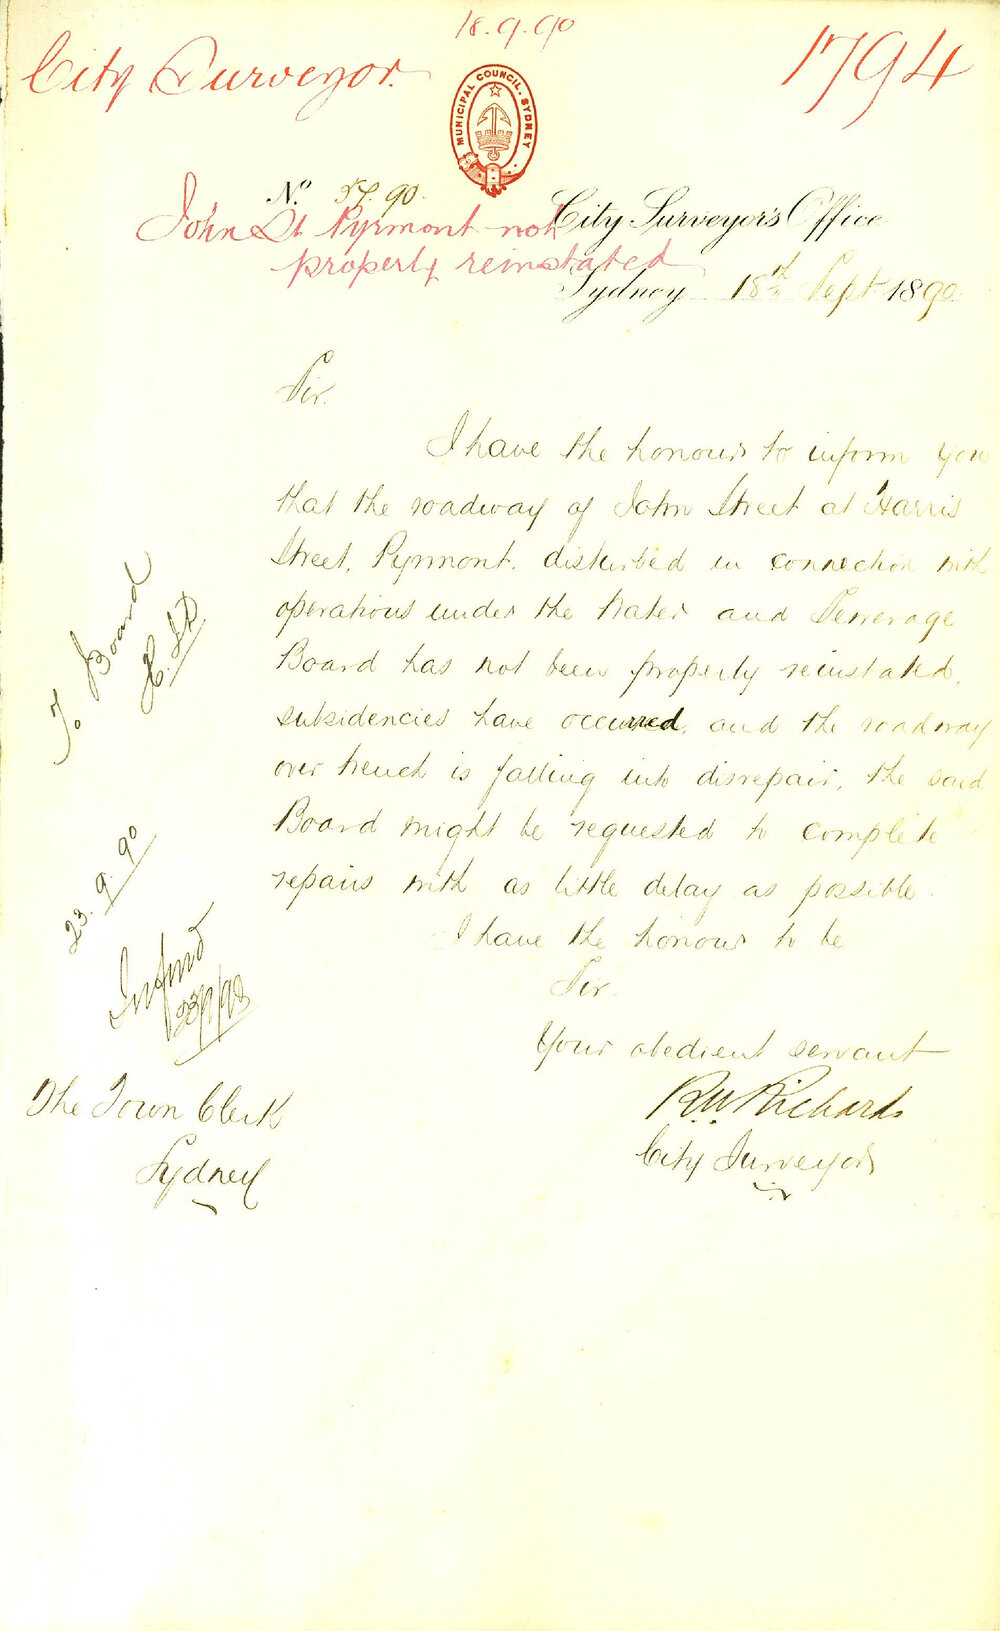 18.9.90
City Surveyor.
1794
MUNICIPAL COUNCIL. SYDNEY
No. 57.90.
City Surveyor's Office
John St Pyrmont not
properly reinstated
Sydney 18th Sept 1890
Sir.
I have the honour to inform you
that the roadway of John Street at Harris
Street, Pyrmont. disturbed in connection with
operations under the Water and Sewerage
Board has not been properly reinstated,
subsidencies have occurred, and the roadway
over trench is falling into disrepair, the said
Board might be requested to complete
repairs with as little delay as possible.
I have the honour to be
Sir.
Your obedient servant
R.W. Richards
City Surveyor
The Town Clerk
Sydney
To Board
23.9.90
Infmd